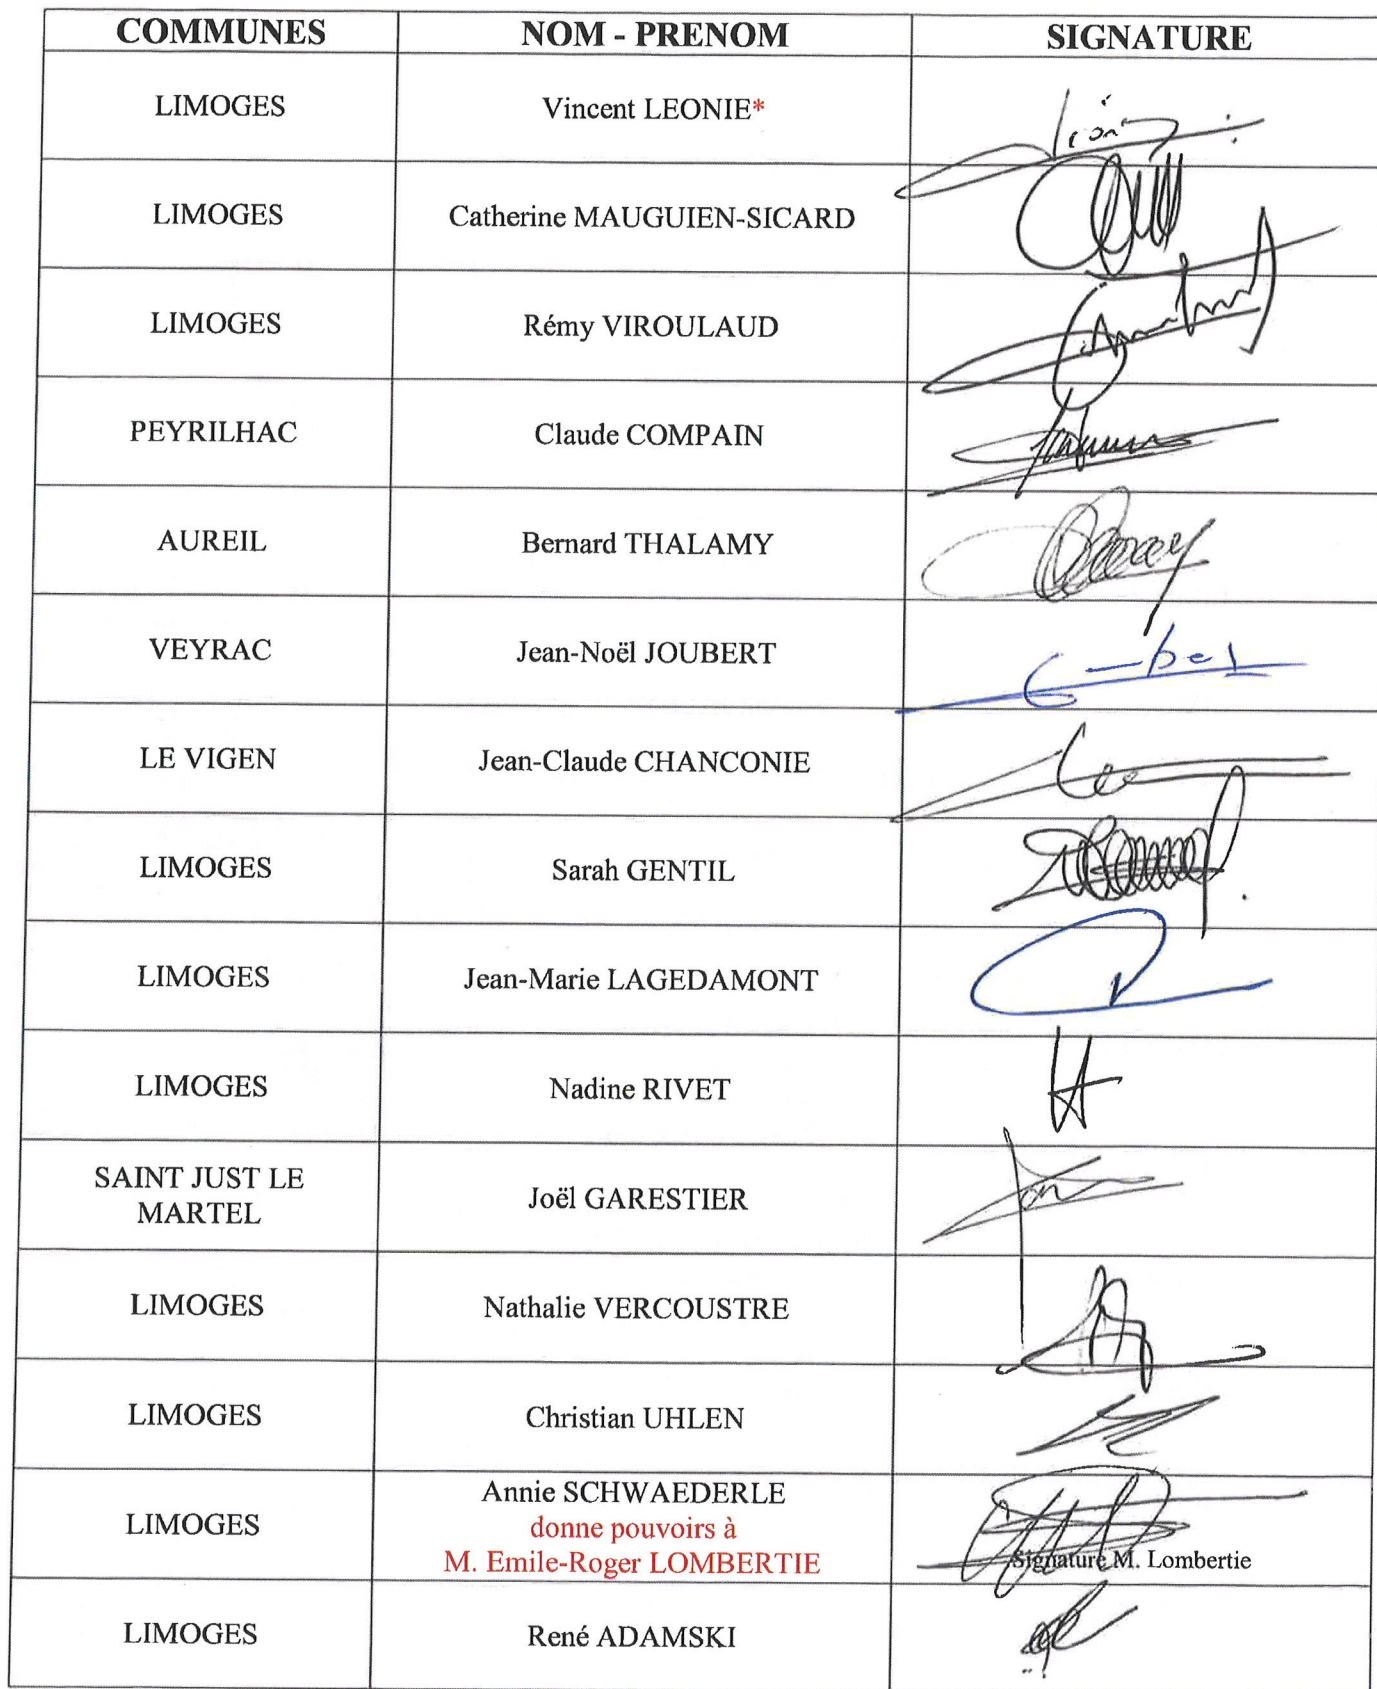 COMMUNES NOM - PRENOM SIGNATURE
LIMOGES Vincent LEONIE*
LIMOGES Catherine MAUGUIEN-SICARD
LIMOGES Rémy VIROULAUD
PEYRILHAC Claude COMPAIN
AUREIL Bernard THALAMY
VEYRAC Jean-Noël JOUBERT
LE VIGEN Jean-Claude CHANCONIE
LIMOGES Sarah GENTIL
LIMOGES Jean-Marie LAGEDAMONT
LIMOGES Nadine RIVET
SAINT JUST LE
MARTEL
Joël GARESTIER
LIMOGES Nathalie VERCOUSTRE
LIMOGES Christian UHLEN
LIMOGES
Annie SCHWAEDERLE
donne pouvoirs à
M. Emile-Roger LOMBERTIE
Signature M. Lombertie
LIMOGES René ADAMSKI